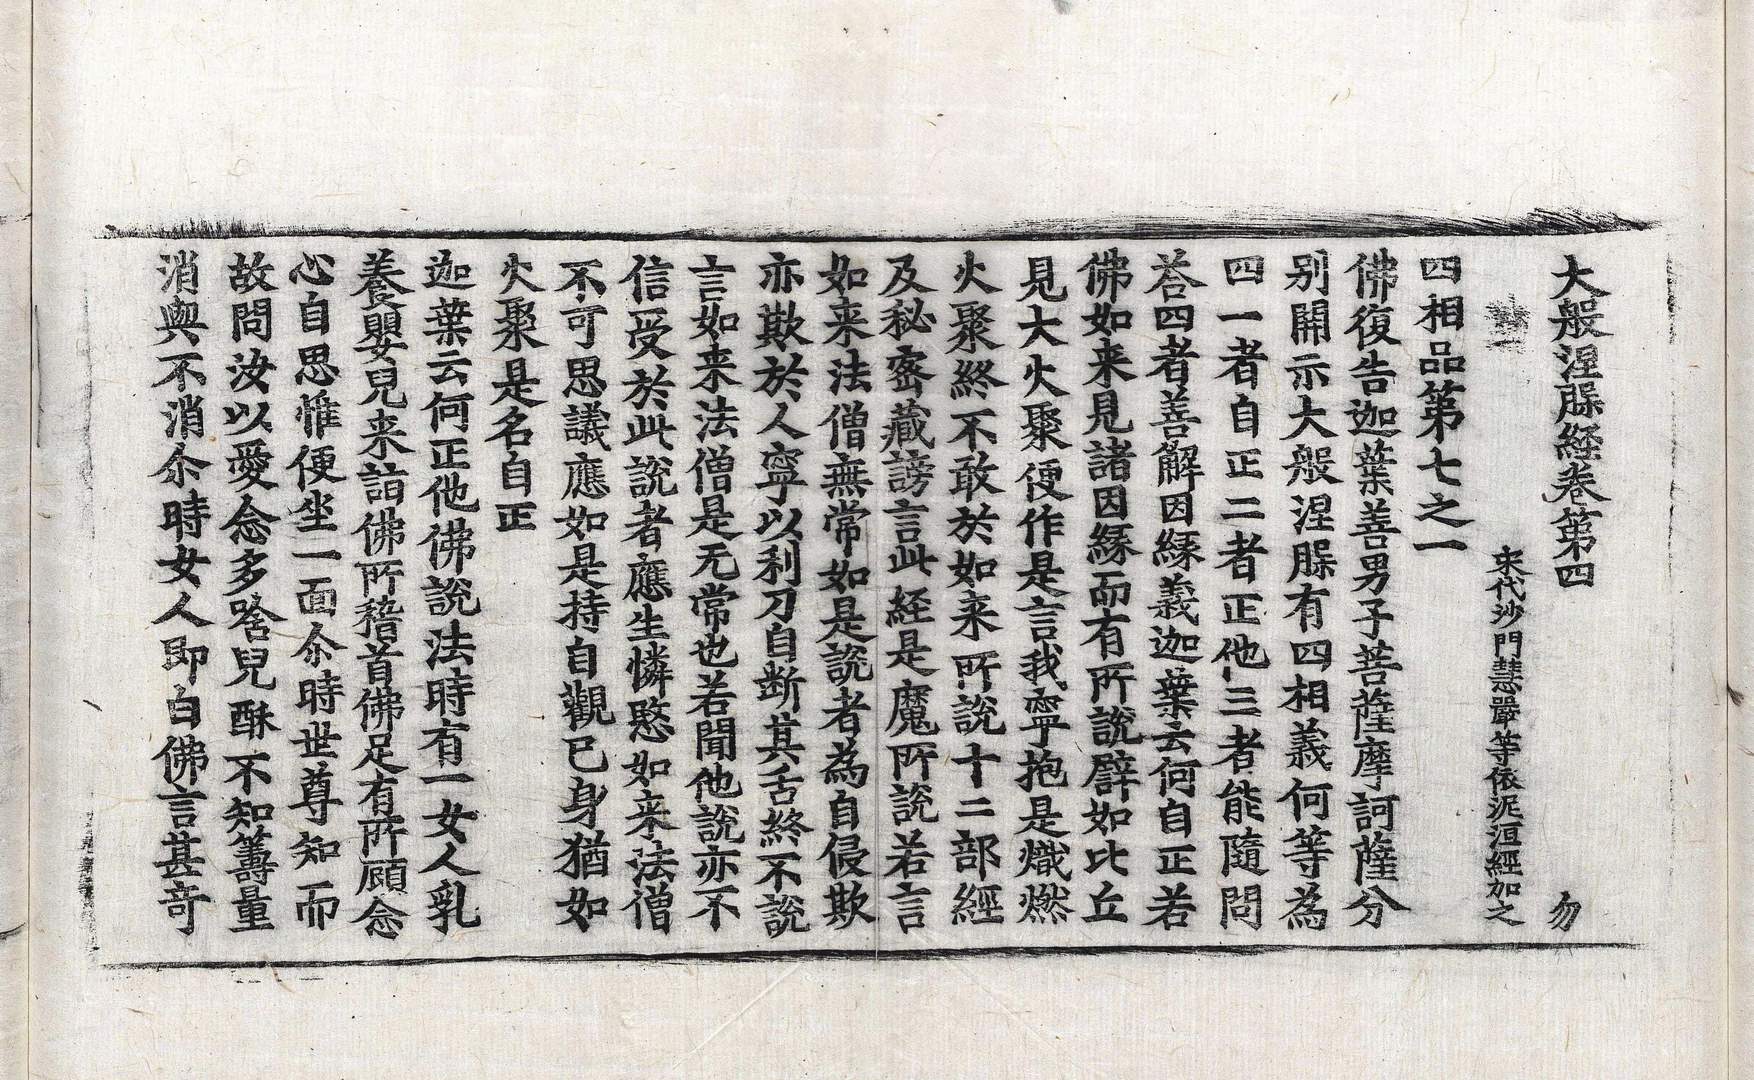 大般涅槃経卷第四　勿
宋代沙門慧嚴等依泥洹經加之
四相品第七之一
佛復告迦葉善男子菩薩摩訶薩分
别開示大般涅槃有四相義何等為
四一者自正二者正他三者能隨問
荅四者善解因緣義迦葉云何自正若
佛如来見諸因緣而有所說譬如比丘
見大火聚便作是言我寧抱是熾燃
火聚終不敢於如来所說十二部經
及秘密藏謗言此経是魔所說若言
如来法僧無常如是說者為自侵欺
亦欺於人寧以利刀自断其舌終不說
言如来法僧是无常也若聞他說亦不
信受於此說者應生憐愍如来法僧
不可思議應如是持自觀已身猶如
火聚是名自正
迦葉云何正他佛說法時有一女人乳
養嬰兒来詣佛所稽首佛足有所顧念
心自思惟便坐一面尒時世尊知而
故問汝以愛念多唅兒酥不知籌量
消與不消尒時女人即白佛言甚奇